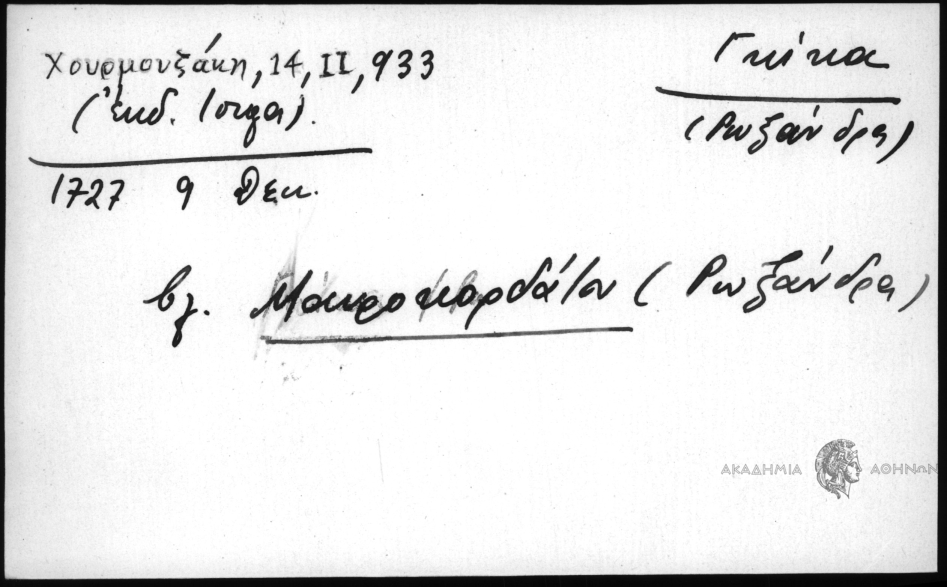 Χουρμουζάκη, 14, II, 933
(ἐκδ. Ιόργα).
1727 9 Δεκ.
Γκίκα
(Ρωξάνδρα)
βλ. Μαυροκορδάτου (Ρωξάνδρα)
ΑΚΑΔΗΜΙΑ ΑΘΗΝΩΝ